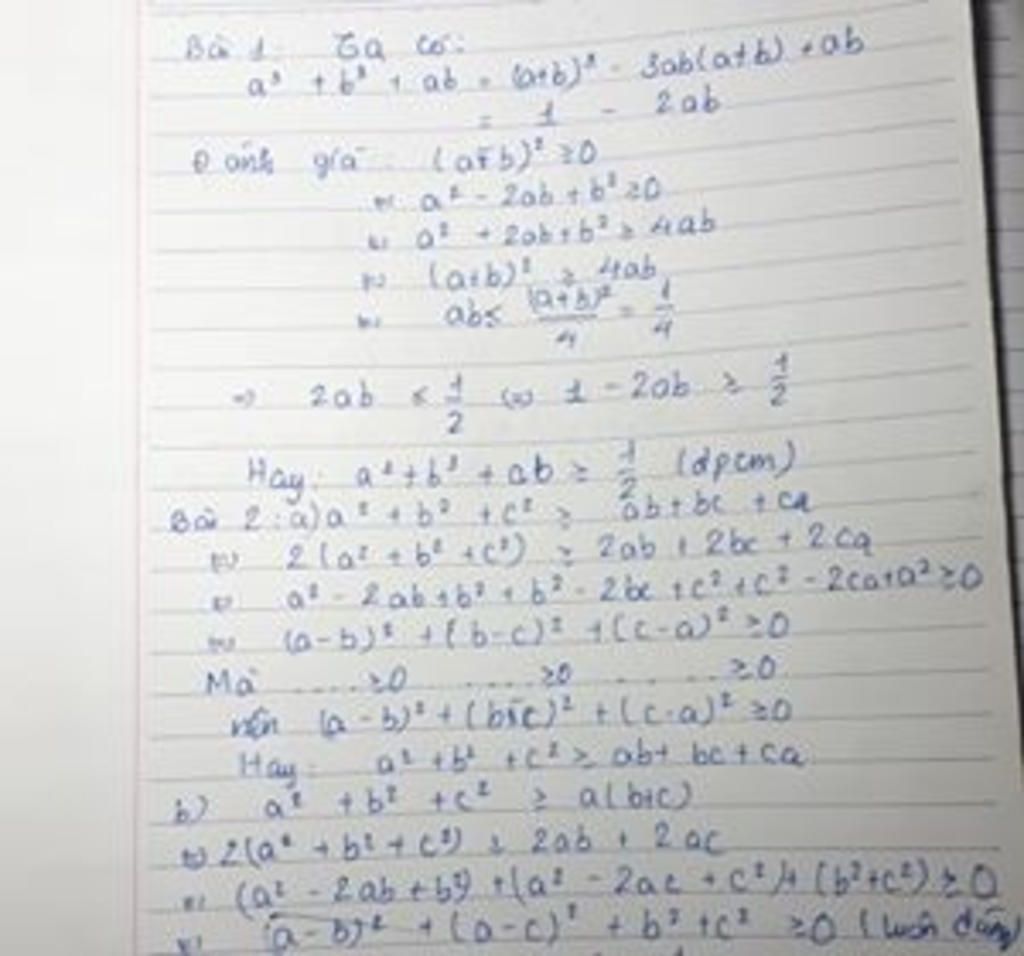 Bài 1 Ta có:
a³ + b³ + ab = (a+b)³ - 3ab(a+b) + ab
= 1 - 2ab
Đánh giá: (a-b)² ≥0
⇔ a² - 2ab + b² ≥0
⇔ a² + 2ab + b² ≥ 4ab
⇔ (a+b)² ≥ 4ab
⇔ ab ≤ (a+b)²/4 = 1/4
⇒ 2ab ≤ 1/2 ⇔ 1 - 2ab ≥ 1/2
Hay: a³ + b³ + ab ≥ 1/2 (đpcm)
Bài 2: a) a² + b² + c² ≥ ab + bc + ca
⇔ 2(a² + b² + c²) ≥ 2ab + 2bc + 2ca
⇔ a² - 2ab + b² + b² - 2bc + c² + c² - 2ca + a² ≥0
⇔ (a-b)² + (b-c)² + (c-a)² ≥0
Mà ....≥0 ....≥0 .... ≥0
nên (a-b)² + (b-c)² + (c-a)² ≥0
Hay: a² + b² + c² ≥ ab + bc + ca
b) a² + b² + c² ≥ a(b+c)
⇔ 2(a² + b² + c²) ≥ 2ab + 2ac
⇔ (a² - 2ab + b²) + (a² - 2ac + c²) + (b² + c²) ≥ 0
⇔ (a-b)² + (a-c)² + b² + c² ≥0 (luôn đúng)